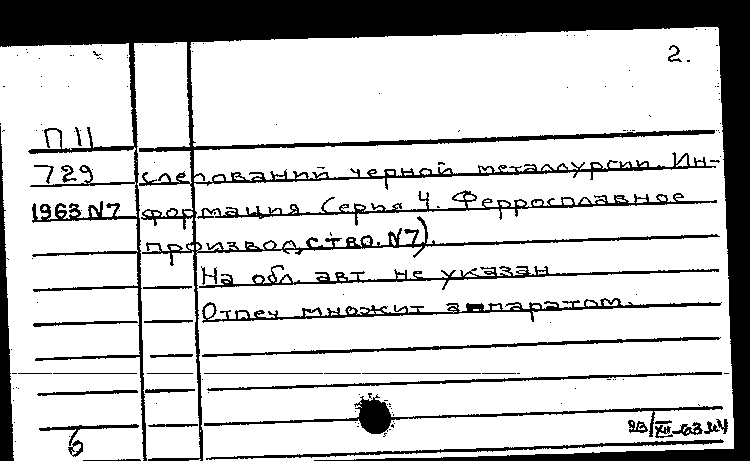 2.
П 11
729 следований черной металлургии. Ин-
1963 N7 формация. Серия 4. Ферросплавное
производство. N7).
На обл. авт. не указан
Отпеч множит аппаратом.
6